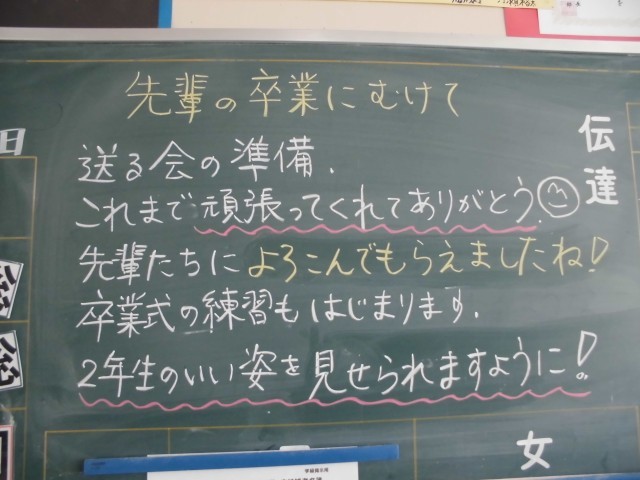 先輩の卒業にむけて
送る会の準備.
これまで頑張ってくれてありがとう.
先輩たちによろこんでもらえましたね!
卒業式の練習もはじまります.
2年生のいい姿を見せられますように!
伝達
日
女